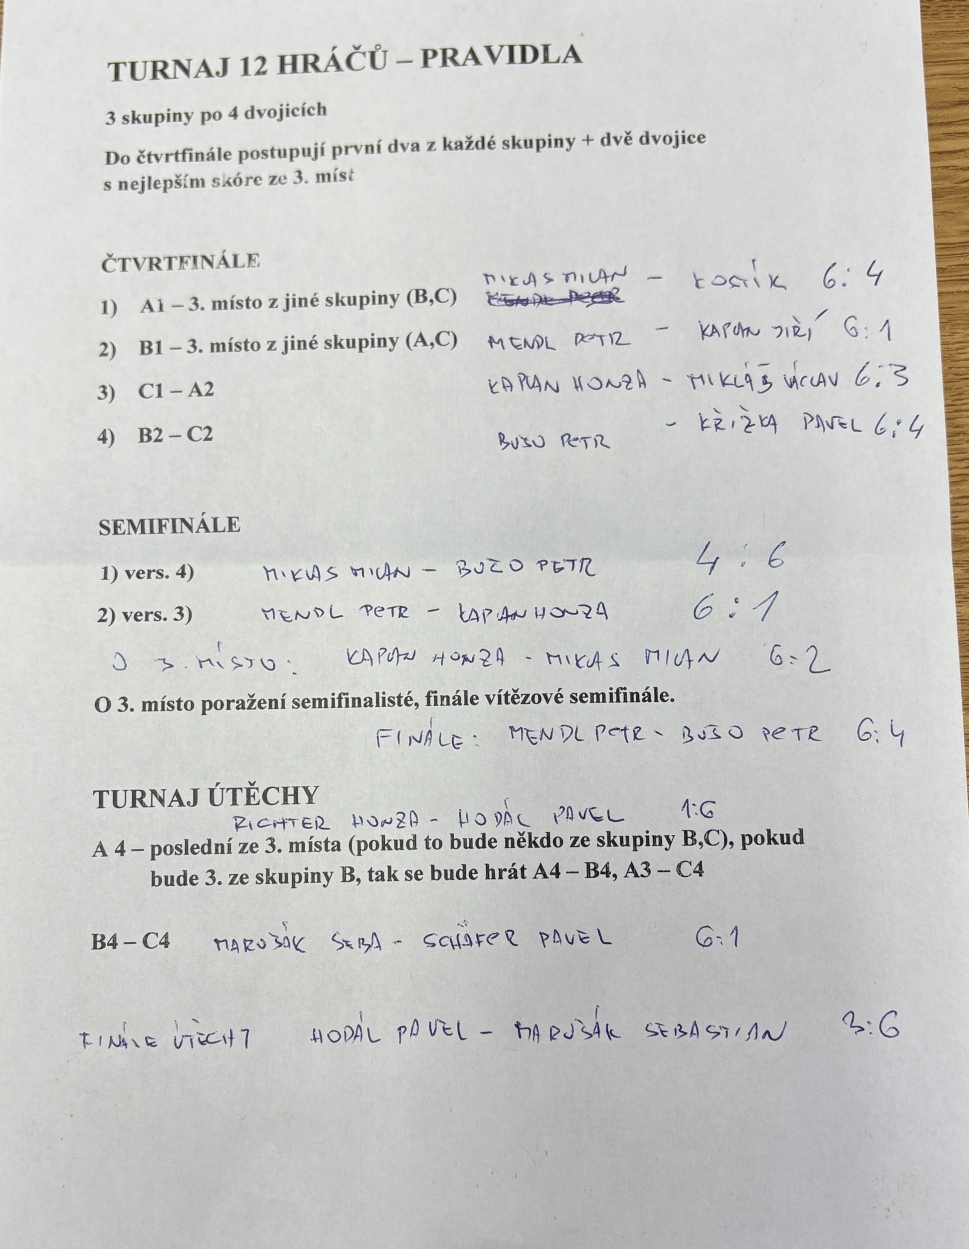 TURNAJ 12 HRÁČŮ – PRAVIDLA
3 skupiny po 4 dvojicích
Do čtvrtfinále postupují první dva z každé skupiny + dvě dvojice
s nejlepším skóre ze 3. míst
ČTVRTFINÁLE
MIKAS MILAN – KOSÍK 6:4
1) A1 – 3. místo z jiné skupiny (B,C)
2) B1 – 3. místo z jiné skupiny (A,C) MENDL PETR – KAPLAN JIŘÍ 6:1
3) C1 – A2 KAPLAN HONZA – MIKLÁŠ VÁCLAV 6:3
4) B2 – C2 BUZO PETR – KŘIŽKA PAVEL 6:4
SEMIFINÁLE
1) vers. 4) MIKAS MILAN – BUZO PETR 4:6
2) vers. 3) MENDL PETR – KAPLAN HONZA 6:1
O 3. MÍSTO: KAPLAN HONZA - MIKAS MILAN 6:2
O 3. místo poražení semifinalisté, finále vítězové semifinále.
FINÁLE: MENDL PETR - BUZO PETR 6:4
TURNAJ ÚTĚCHY
RICHTER HONZA - HODÁL PAVEL 1:6
A 4 – poslední ze 3. místa (pokud to bude někdo ze skupiny B,C), pokud
bude 3. ze skupiny B, tak se bude hrát A4 – B4, A3 – C4
B4 – C4 MAROŠÁK SEBA - SCHÄFER PAVEL 6:1
FINÁLE ÚTĚCHY HODÁL PAVEL – MAROŠÁK SEBASTIAN 3:6